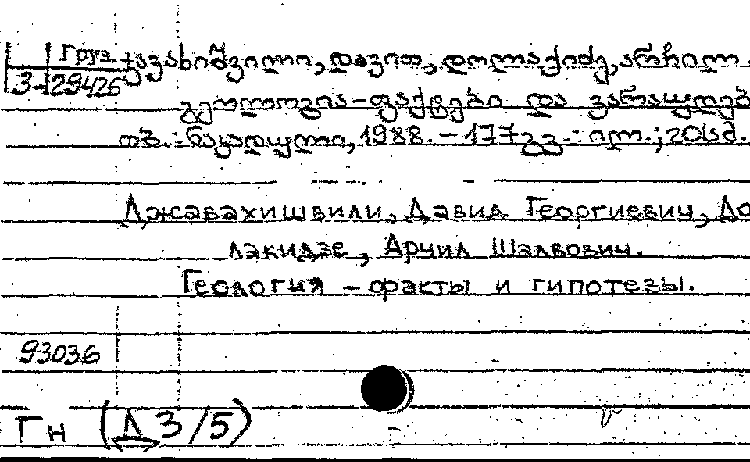 Груз
3-29426
ჯავახიშვილი, დავით, დოლაქიძე, არჩილ.
გეოლოგია – ფაქტები და ვარაუდებ
თბ.: ნაკადული, 1988. – 177 გვ.: ილ.; 20 სმ.
Джавахишвили, Давид Георгиевич, До
лакидзе, Арчил Шалвович.
Геология – факты и гипотезы.
93036
Гн (Д 3/5)